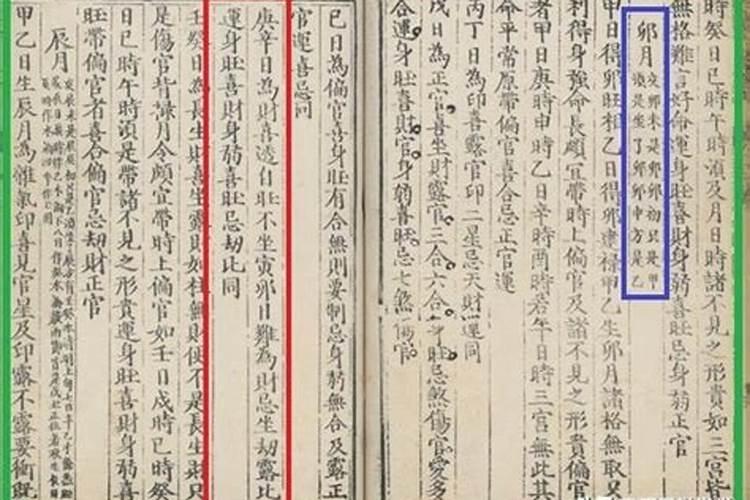 時癸日巳時午時須及月日時諸不見之形貴如三宮皆
無格難言好命運身旺喜財身弱喜旺忌身弱正官
卯月
甲日得卯旺相乙日得卯建祿甲乙生卯月諸格無取只
利得身強命長頗宜帶時上偏官及諸不見之形貴偏官
者甲日庚時申時乙日辛時酉時若午日時三宮無此其
命平常原帶偏官喜合忌正官運
丙丁日為印喜露官印二星忌天財運同
戊日為正官喜坐財露官三合六合年旺忌煞傷官愛多
合運身旺喜財官身弱喜旺忌七煞傷官
己日為偏官喜身旺有合無則要制忌身弱無合及露正
官運喜忌同
庚辛日為財喜透自旺不坐寅卯日難為財忌坐劫露比
運身旺喜財身弱喜旺忌劫比同
壬癸日為長生財喜生露財如柱無財便不是長生財只
是傷官背祿月令頗宜帶時上偏官如壬日戌時巳時癸
日巳時午時須是帶諸不見之形貴運身旺喜財身弱喜
旺帶偏官者喜合偏官忌劫財正官
辰月
甲乙日生辰月為雜氣印喜見官星及印露不露要衝既